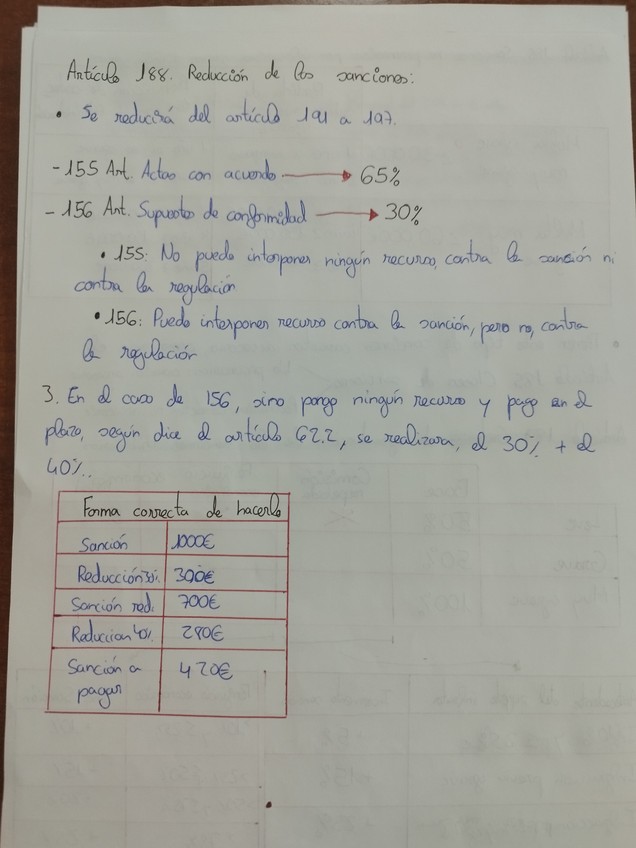 Artículo 188. Reducción de las sanciones:
• Se reducirá del artículo 191 a 197.
- 155 Art. Actas con acuerdo → 65%
- 156 Art. Supuestos de conformidad → 30%
• 155: No puedo interponer ningún recurso, contra la sanción ni
contra la regulación
• 156: Puedo interponer recurso contra la sanción, pero no, contra
la regulación
3. En el caso de 156, sino pongo ningún recurso y pago en el
plazo, según dice el artículo 62.2, se realizara, el 30% + el
40%..
Forma correcta de hacerlo
Sanción 1000€
Reducción 30% 300€
Sanción red. 700€
Reduccion 40% 280€
Sanción a 420€
pagar